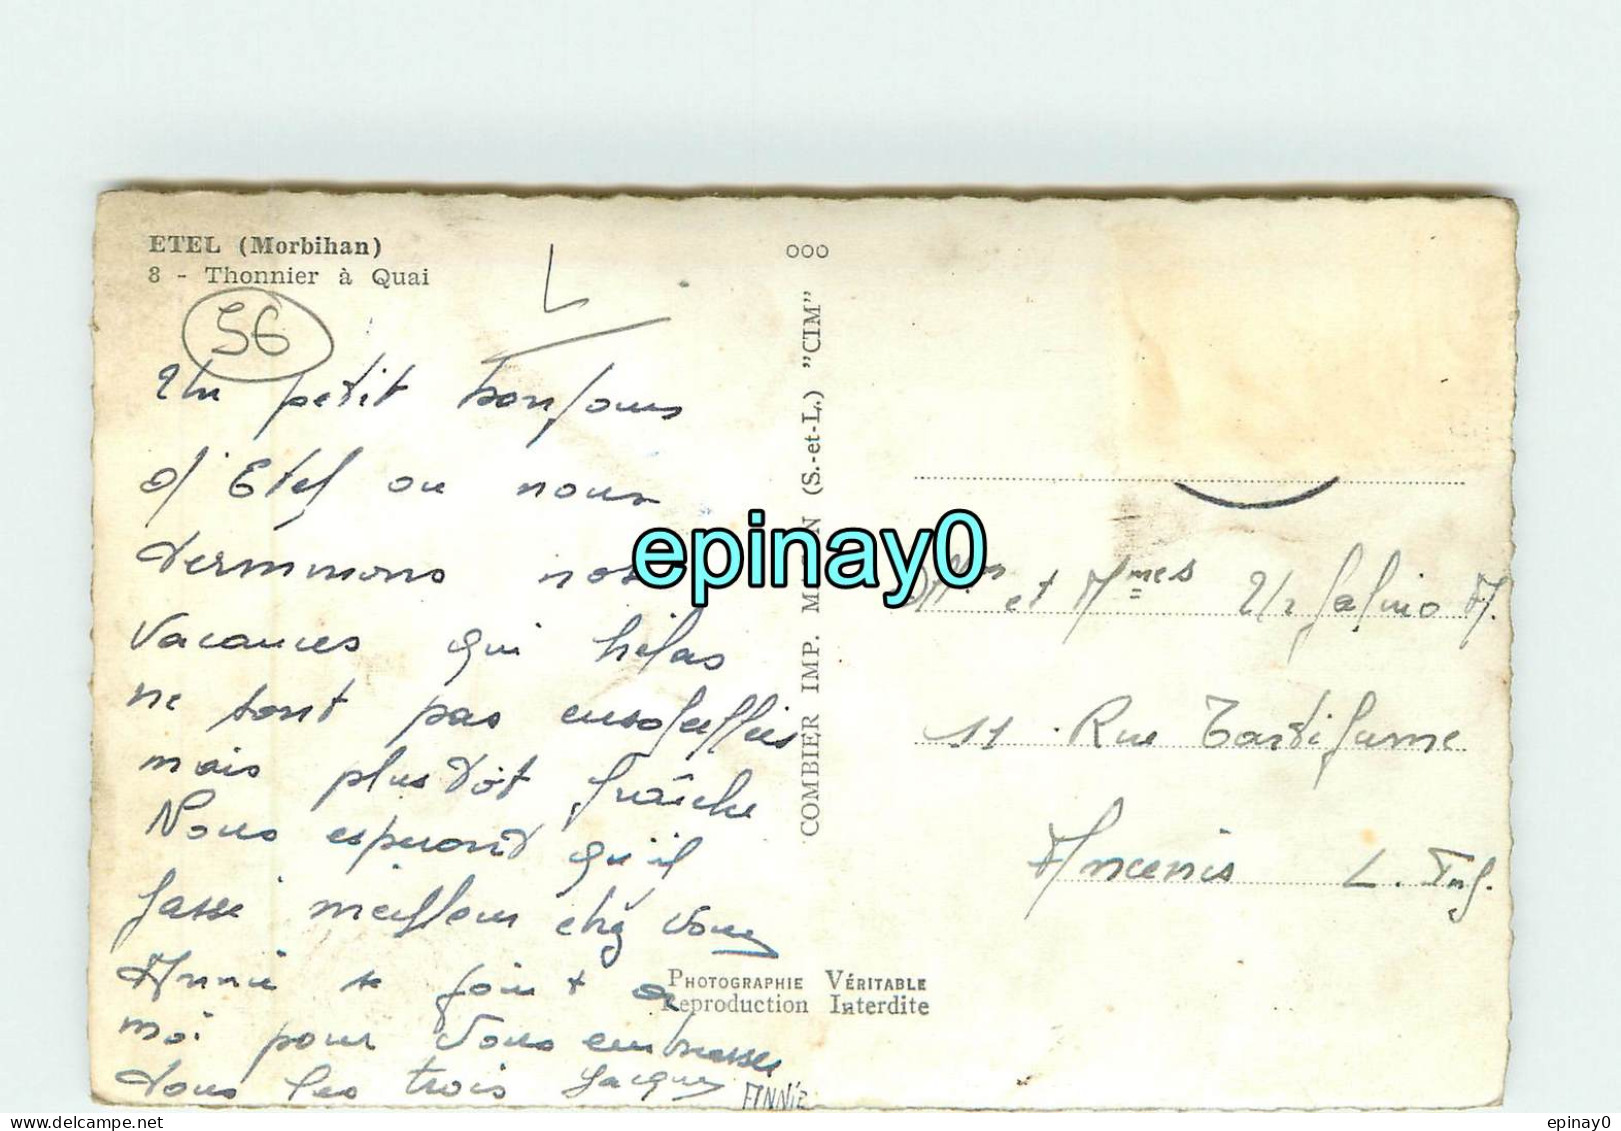 ETEL (Morbihan)
8 - Thonnier à Quai
56
Un petit bonjour
d'Etel ou nous
terminons nos
vacances qui hélas
ne sont pas ensoleillées
mais plustôt fraîche
Nous esperont qu'il
fasse meilleur chez vous
Annie se joint a
moi pour vous embrasser
tous les trois Jacques ANNIE
ooo
COMBIER IMP. M N (S.-et-L.) "CIM"
PHOTOGRAPHIE VÉRITABLE
Reproduction Interdite
et Mmes
11 Rue Tartifume
Ancenis L. Inf.
epinay0
epinay0